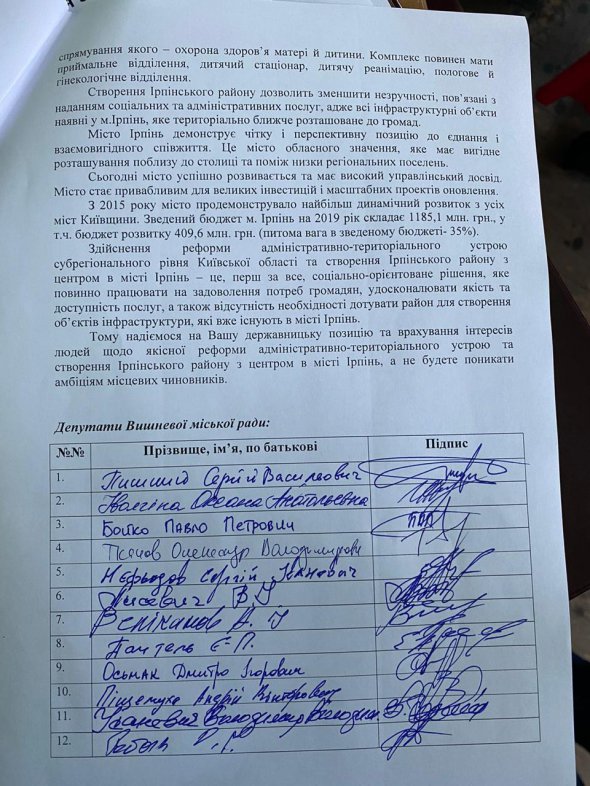 спрямування якого – охорона здоров’я матері й дитини. Комплекс повинен мати
приймальне відділення, дитячий стаціонар, дитячу реанімацію, пологове й
гінекологічне відділення.
Створення Ірпінського району дозволить зменшити незручності, пов’язані з
наданням соціальних та адміністративних послуг, адже всі інфраструктурні об’єкти
наявні у м.Ірпінь, яке територіально ближче розташоване до громад.
Місто Ірпінь демонструє чітку і перспективну позицію до єднання і
взаємовигідного співжиття. Це місто обласного значення, яке має вигідне
розташування поблизу до столиці та поміж низки регіональних поселень.
Сьогодні місто успішно розвивається та має високий управлінський досвід.
Місто стає привабливим для великих інвестицій і масштабних проектів оновлення.
З 2015 року місто продемонструвало найбільш динамічний розвиток з усіх
міст Київщини. Зведений бюджет м. Ірпінь на 2019 рік складає 1185,1 млн. грн., у
т.ч. бюджет розвитку 409,6 млн. грн. (питома вага в зведеному бюджеті- 35%).
Здійснення реформи адміністративно-територіального устрою
субрегіонального рівня Київської області та створення Ірпінського району з
центром в місті Ірпінь – це, перш за все, соціально-орієнтоване рішення, яке
повинно працювати на задоволення потреб громадян, удосконалювати якість та
доступність послуг, а також відсутність необхідності дотувати район для створення
об’єктів інфраструктури, які вже існують в місті Ірпінь.
Тому надіємося на Вашу державницьку позицію та врахування інтересів
людей щодо якісної реформи адміністративно-територіального устрою та
створення Ірпінського району з центром в місті Ірпінь, а не будете поникати
амбіціям місцевих чиновників.
Депутати Вишневої міської ради:
№№ Прізвище, ім’я, по батькові Підпис
1. Сергій Васильович
2. Оксана Анатольевна
3. Бойко Павло Петрович
4. Олександр Володимирович
5. Нефьодов Сергій Іванович
6.
7. Веліканов А. І
8. Пантель Є. П.
9. Осьмак Дмитро Ігорович
10. Андрій Вікторович
11. Володимир
12.